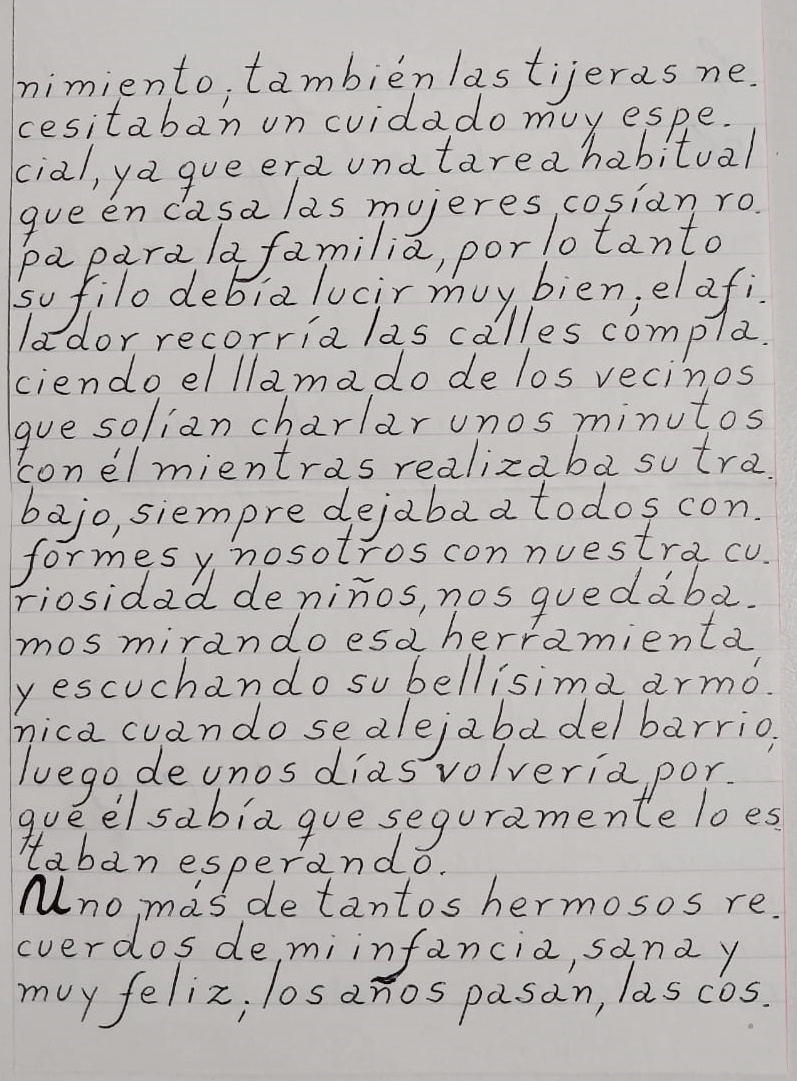 nimiento; también las tijeras ne.
cesitaban un cuidado muy espe.
cial, ya que era una tarea habitual
que en casa las mujeres cosían ro.
pa para la familia, por lo tanto
su filo debía lucir muy bien; el afi.
lador recorría las calles compla.
ciendo el llamado de los vecinos
que solían charlar unos minutos
con él mientras realizaba su tra.
bajo, siempre dejaba a todos con.
formes y nosotros con nuestra cu.
riosidad de niños, nos quedába.
mos mirando esa herramienta
y escuchando su bellísima armó.
nica cuando se alejaba del barrio,
luego de unos días volvería por.
qué él sabía que seguramente lo es
taban esperando.
Uno más de tantos hermosos re.
cuerdos de mi infancia, sana y
muy feliz; los años pasan, las cos.